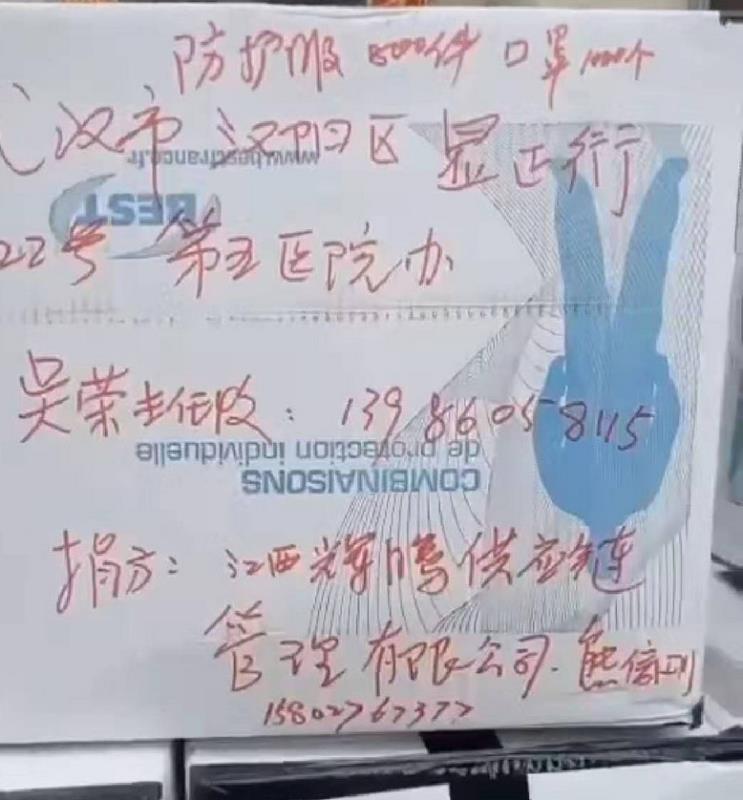 防护服 800件 口罩1000个
武汉市汉阳区显正街
22号 第五医院办
吴荣主任收：13986058115
捐方：江西辉腾供应链
管理有限公司.熊信
15802767377
www.bestfrance.fr
BEST
COMBINAISONS
de protection individuelle